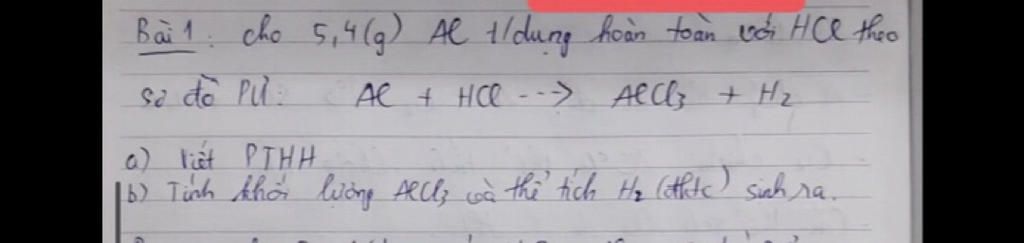 Bài 1: cho 5,4(g) Al t/dụng hoàn toàn với HCl theo
sơ đồ PƯ: Al + HCl ---> AlCl3 + H2
a) Viết PTHH
b) Tính khối lượng AlCl3 và thể tích H2 (đktc) sinh ra.